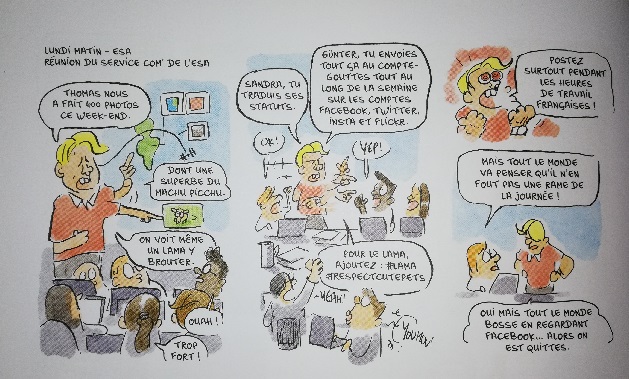 LUNDI MATIN - ESA
RÉUNION DU SERVICE COM' DE L'ESA
THOMAS NOUS
A FAIT 400 PHOTOS
CE WEEK-END.
DONT UNE
SUPERBE DU
MACHU PICCHU.
ON VOIT MÊME
UN LAMA Y
BROUTER.
OUAH !
TROP
FORT !
SANDRA, TU
TRADUIS SES
STATUTS.
GÜNTER, TU ENVOIES
TOUT ÇA AU COMPTE-
GOUTTES TOUT AU
LONG DE LA SEMAINE
SUR LES COMPTES
FACEBOOK, TWITTER,
INSTA ET FLICKR.
OK!
YEP!
POUR LE LAMA,
AJOUTEZ : #LAMA
#RESPECTCUTEPETS
YEAH!
POSTEZ
SURTOUT PENDANT
LES HEURES
DE TRAVAIL
FRANÇAISES !
MAIS TOUT LE MONDE
VA PENSER QU'IL N'EN
FOUT PAS UNE RAME DE
LA JOURNÉE !
OUI MAIS TOUT LE MONDE
BOSSE EN REGARDANT
FACEBOOK... ALORS ON
EST QUITTES.